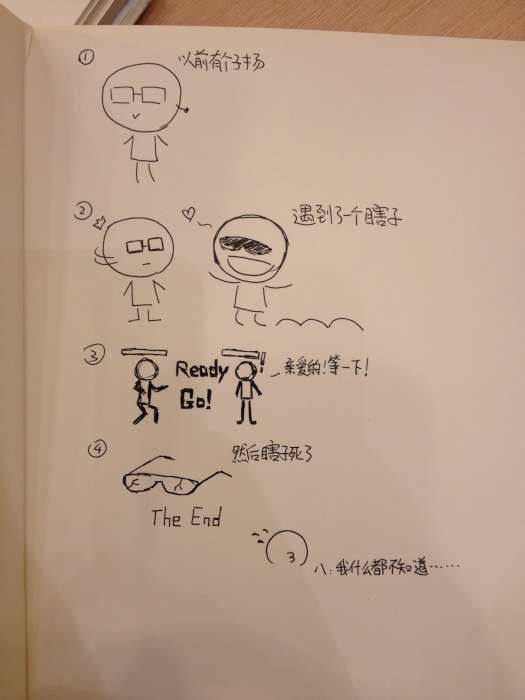 ① 以前有个子扬
② 遇到了一个瞎子
③ Ready
Go!
亲爱的!等一下!
④ 然后瞎子死了
The End
3
八:我什么都不知道……